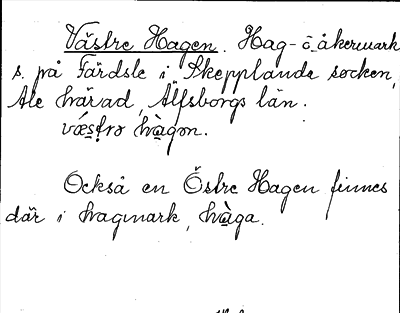 Västre Hagen. Hag- o. åkermark
s. på Färdsle i Skepplanda socken,
Ale härad, Älfsborgs län.
væ̀strə hàgən.
Också en Östre Hagen finnes
där i hagmark, hàga.